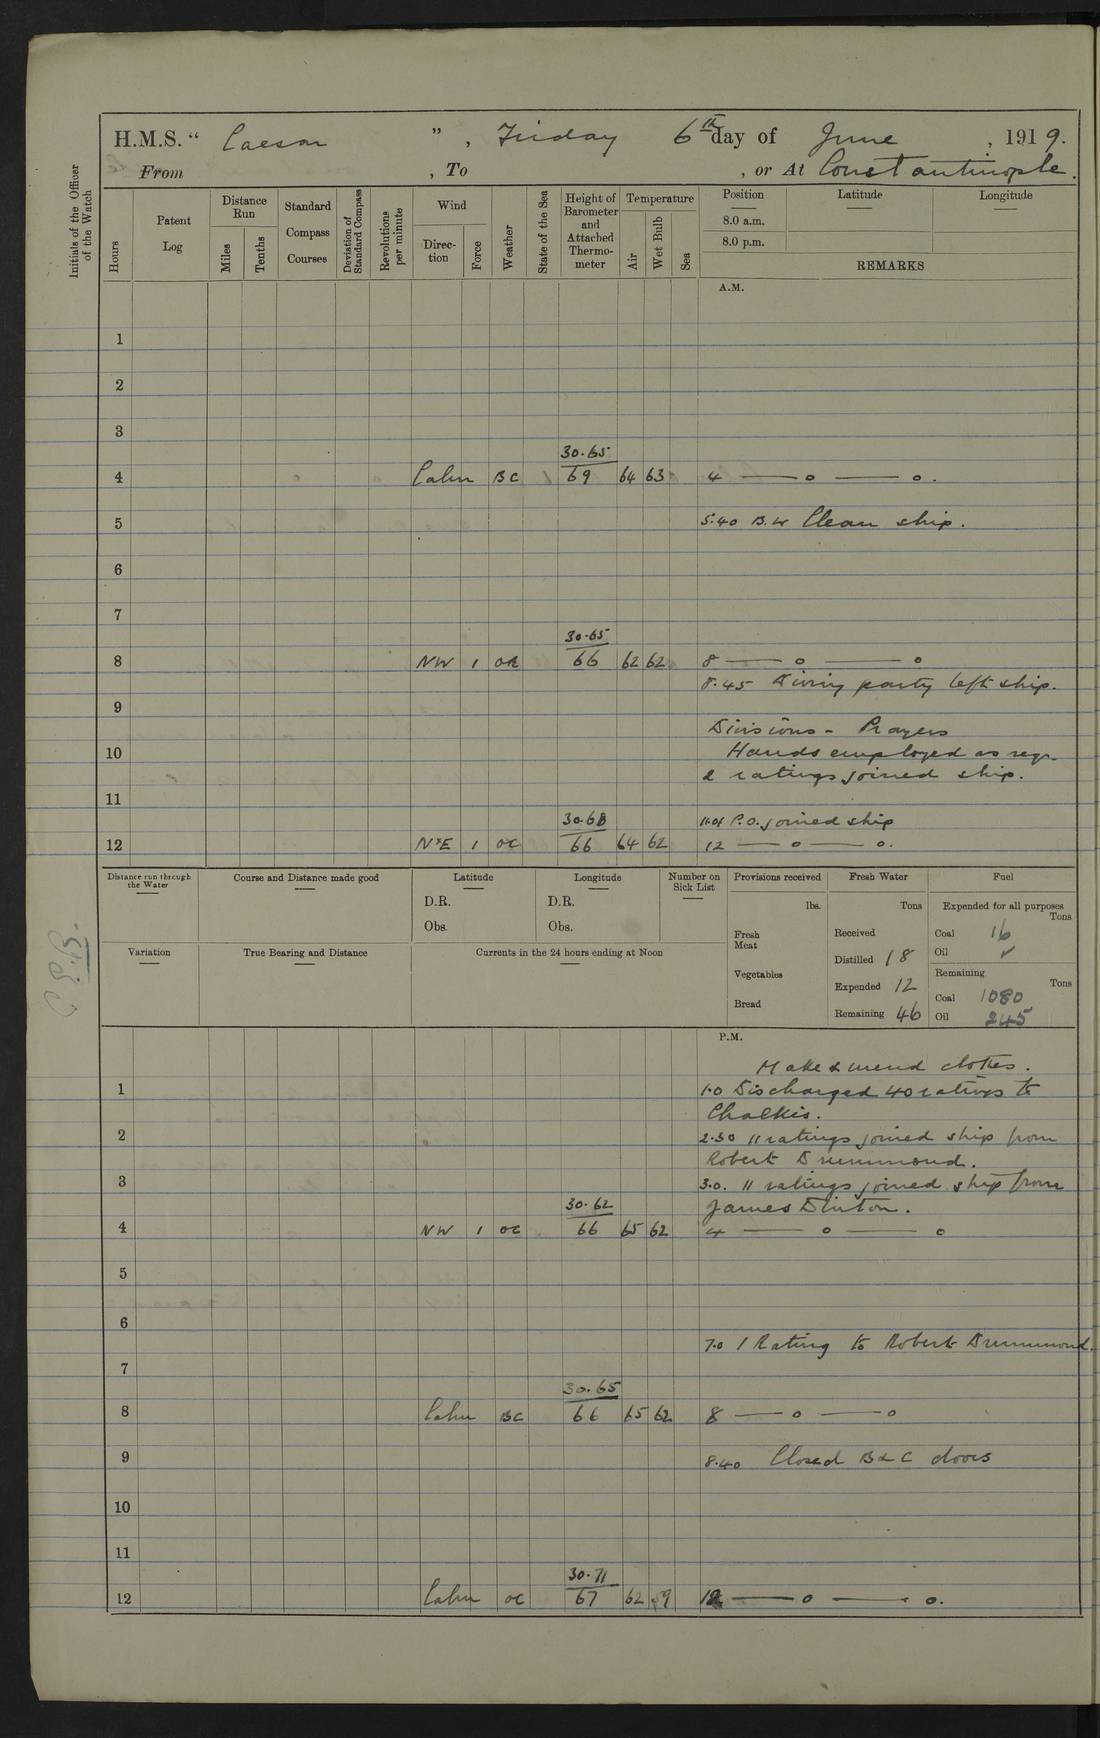 H.M.S. “ Caesar ”, Friday 6th day of June, 1919.
From , To , or At Constantinople.
Initials of the Officer of the Watch
Hours
Patent Log
Distance Run
Miles
Tenths
Standard Compass Courses
Deviation of Standard Compass
Revolutions per minute
Wind
Direction
Force
Weather
State of the Sea
Height of Barometer and Attached Thermometer
Temperature
Air
Wet Bulb
Sea
Position Latitude Longitude
8.0 a.m.
8.0 p.m.
REMARKS
A.M.
1
2
3
30.65
4 Calm BC 69 64 63 4 — o — o.
5 5.40 B.W Clean ship.
6
7
30.65
8 NW 1 OR 66 62 62 8 — o — o
8.45 Diving party left ship.
9
Divisions - Prayers
10 Hands employed as req.
2 ratings joined ship.
11
30.68 P.O. joined ship
12 N'E 1 OC 66 64 62 12 — o — o.
Distance run through the Water
Course and Distance made good
Latitude
D.R.
Obs.
Longitude
D.R.
Obs.
Number on Sick List
Provisions received
lbs.
Fresh Meat
Vegetables
Bread
Fresh Water
Tons
Received
Distilled 18
Expended 12
Remaining 46
Fuel
Expended for all purposes
Tons
Coal 16
Oil ✓
Remaining
Tons
Coal 1080
Oil 245
Variation
True Bearing and Distance
Currents in the 24 hours ending at Noon
P.M.
Make & mend clothes.
1 1.0 Discharged 40 ratings to
Chalkis.
2 2.30 11 ratings joined ship from
Robert Drummond.
3 3.0. 11 ratings joined ship from
30.62 James Dinton.
4 NW 1 OC 66 65 62 4 — o — o
5
6
7.0 1 Rating to Robert Drummond.
7
30.65
8 Calm BC 66 65 62 8 — o — o
9 8.40 Closed B & C doors
10
11
30.71
12 Calm OC 67 62 59 12 — o — o.